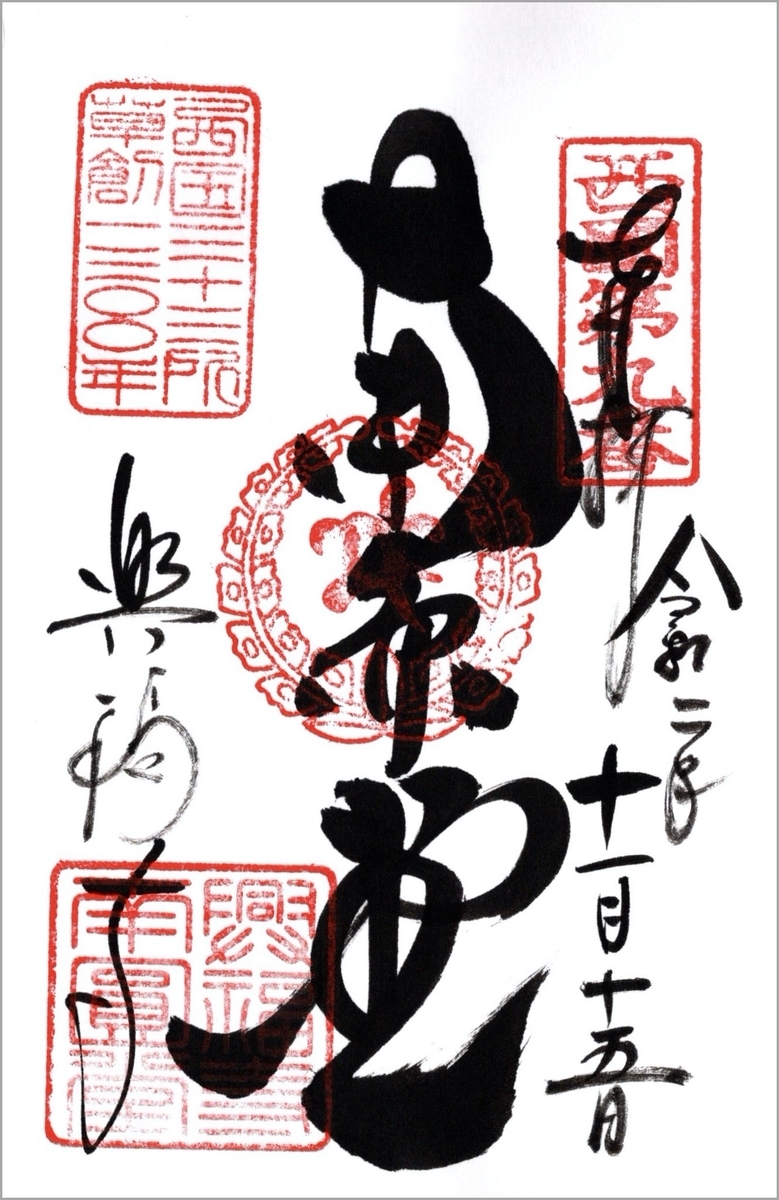 西国第九番
奉拝
令和二年
十一月十五日
南圓堂
西国三十三所
草創一三〇〇年
興福寺
興福寺
南圓堂